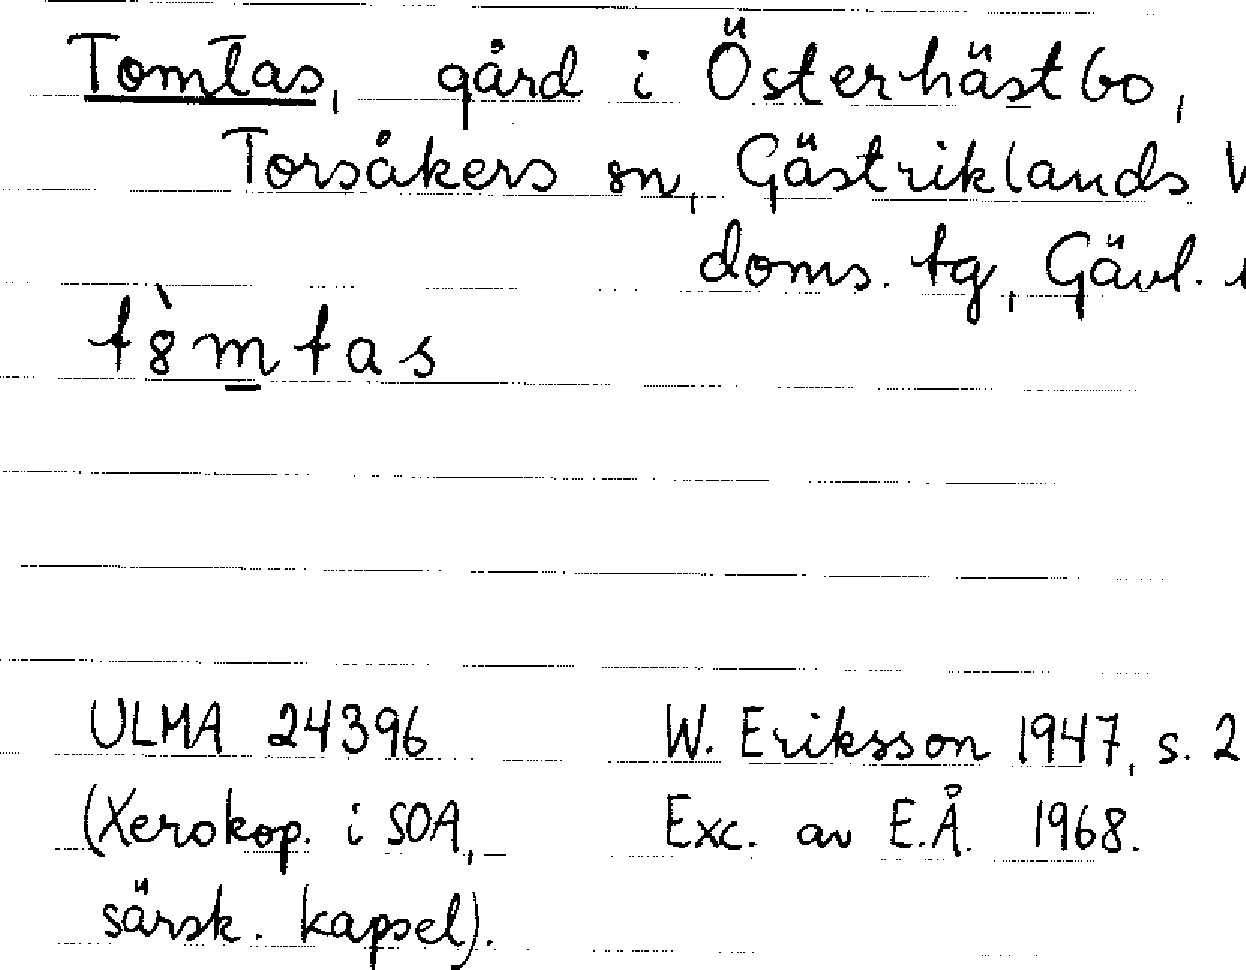 Tomtas, gård i Österhästbo,
Torsåkers sn, Gästriklands V
doms. tg, Gävl.
t8̀m̲tas
ULMA 24396 W. Eriksson 1947, s. 2
(Xerokop. i SOA, Exc. av E.Å. 1968.
särsk. kapsel).